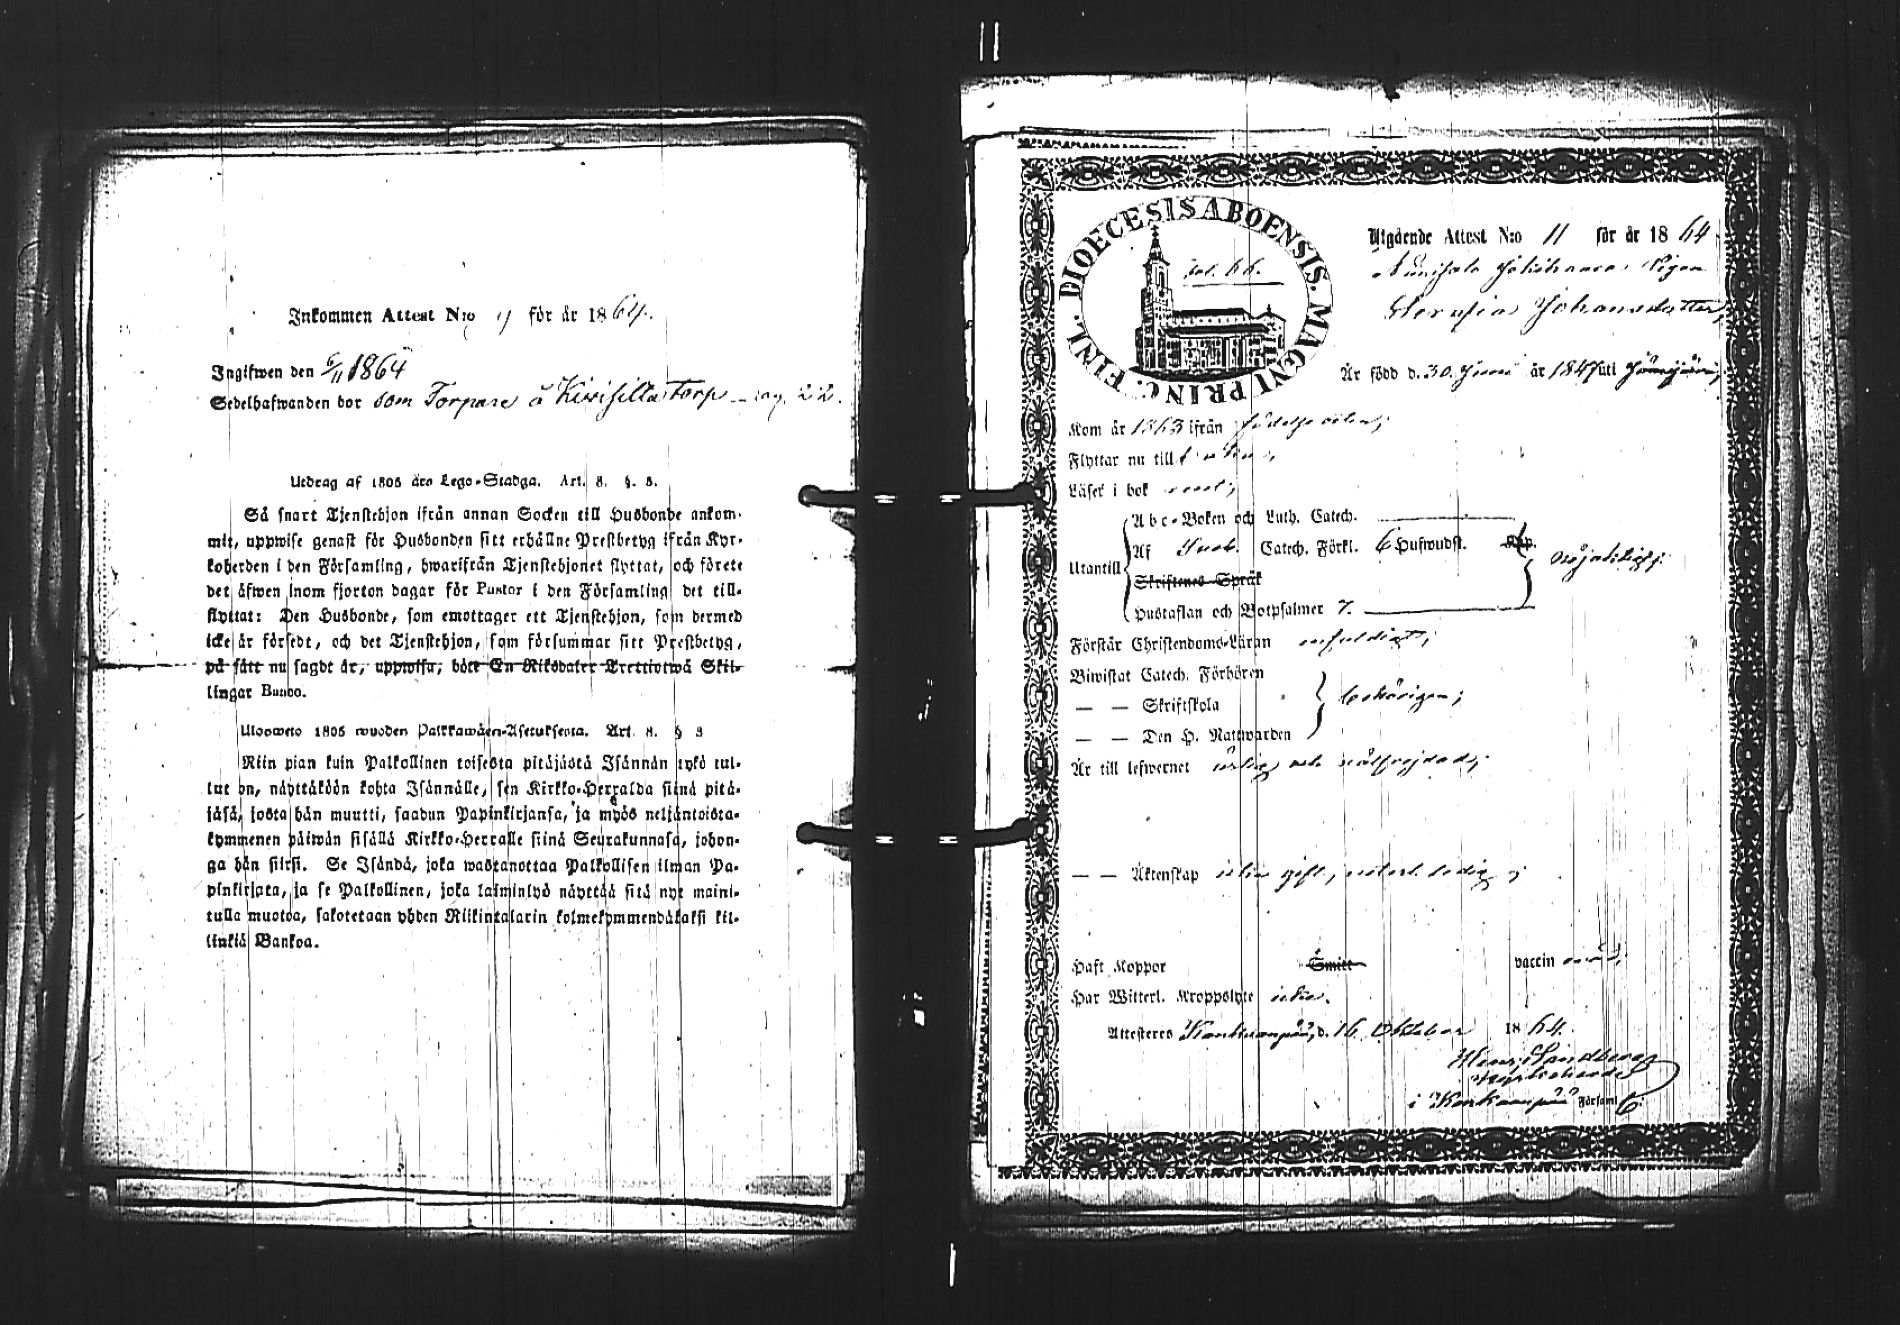 Inkommen Attest N:o 9 för år 1864.
Ingifwen den 6/11 1864
Sedelhafwanden bor som Torpare å Kirisilla torp pag. 22.
Utdrag af 1805 års Lego-Stadga. Art. 8. §. 3.
Så snart Tjenstehjon ifrån annan Socken till Husbonde ankom-
mit, uppwise genast för Husbonden sitt erhållne Prestbetyg ifrån Kyr-
koherden i den Församling, hwarifrån Tjenstehjonet flyttat, och förete
det äfwen inom fjorton dagar för Pastor i den Församling det till-
flyttat: Den Husbonde, som emottager ett Tjenstehjon, som dermed
icke är försedt, och det Tjenstehjon, som försummar sitt Prestbetyg,
på sätt nu sagdt är, uppwisa, böte En Riksdaler Trettiotwå Skil-
lingar Banco.
Ulosweto 1805 wuoden Palkkawäen-Asetuksesta. Art. 8. § 3
Niin pian kuin Palkollinen toisesta pitäjästä Isännän tykö tul-
lut on, näyttäköön kohta Isännälle, sen Kirkko-Herralda siinä pitä-
jäsä, josta hän muutti, saadun Papinkirjansa, ja myös neljäntoista-
kymmenen päiwän sisällä Kirkko-Herralle siinä Seurakunnasa, johon-
ga hän siirsi. Se Isändä, joka wastanottaa Palkollisen ilman Pa-
pinkirjata, ja se Palkollinen, joka laiminlyö näyttää sitä nyt maini-
tulla muotoa, sakotetaan yhden Riikintalarin kolmekymmendäkaksi kil-
linkiä Bankoa.
DIOECESIS ABOENSIS. MAGNI PRINC. FINL.
fol. 66.
Utgående Attest N:o 11 för år 1864.
Johansdotter,
Är född d. 30 Juni år 1847 uti Jämijärvi;
Kom år 1863 ifrån födelse orten;
Flyttar nu till
Läser i bok
Utantill
Abc-Boken och Luth. Catech.
Af Sveb. Catech. Förkl. 6 Hufwudst. Kap.
Skriftenes Språk
Hustaflan och Botpsalmer 7.
nöjaktigt;
Förstår Christendoms-Läran enfaldigt;
Biwistat Catech. Förhören
— — Skriftskola
— — Den H. Nattwarden
behörigen;
Är till lefwernet ärlig och wälfrejdad;
— — Äktenskap icke gift, ledig;
Haft Koppor Smitt vaccin
Har Witterl. Kroppslyte icke.
Attesteras Kankaanpää, d. 16 Oktober 1864.
Henr. Sandberg
Kyrkoherde
i Kankaanpää Församl.